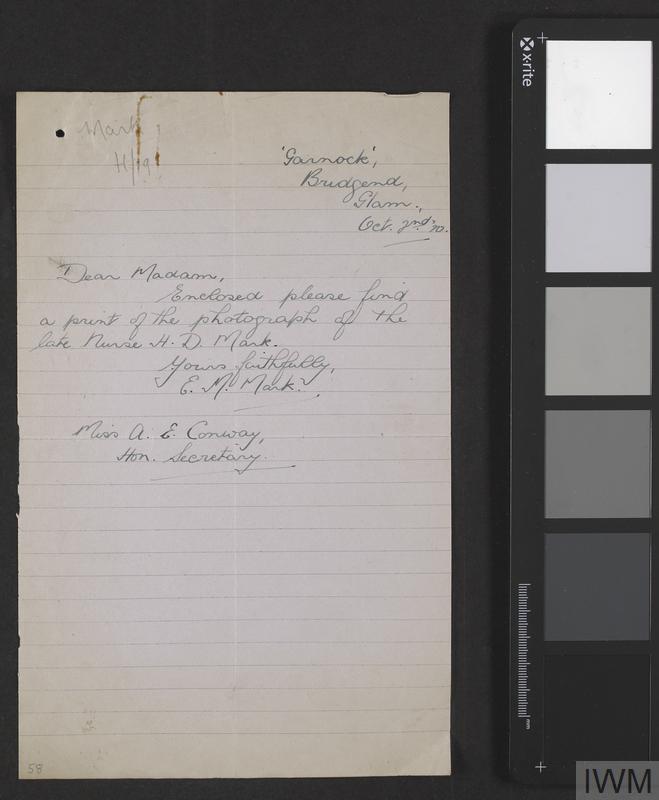 Mark
H/19
'Garnock',
Bridgend,
Glam.,
Oct. 2nd '20.
Dear Madam,
Enclosed please find
a print of the photograph of the
late Nurse H. D. Mark.
Yours faithfully,
E. M. Mark.
Miss A. E. Conway,
Hon. Secretary.
58
x-rite
mm
IWM